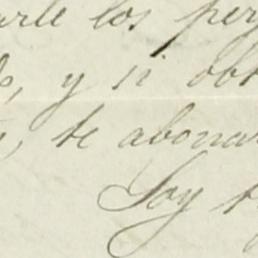 arle los per
, y si obt
, te abonar
Soy t